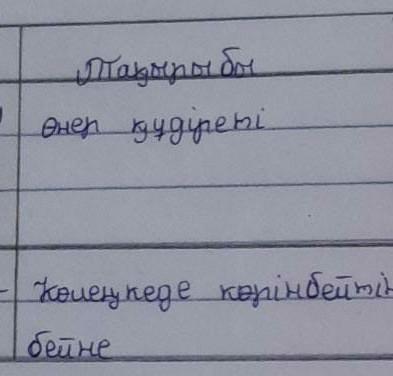 Тақырыбы
Өнер құдіреті
Көлеңкеде көрінбейтін
бейне